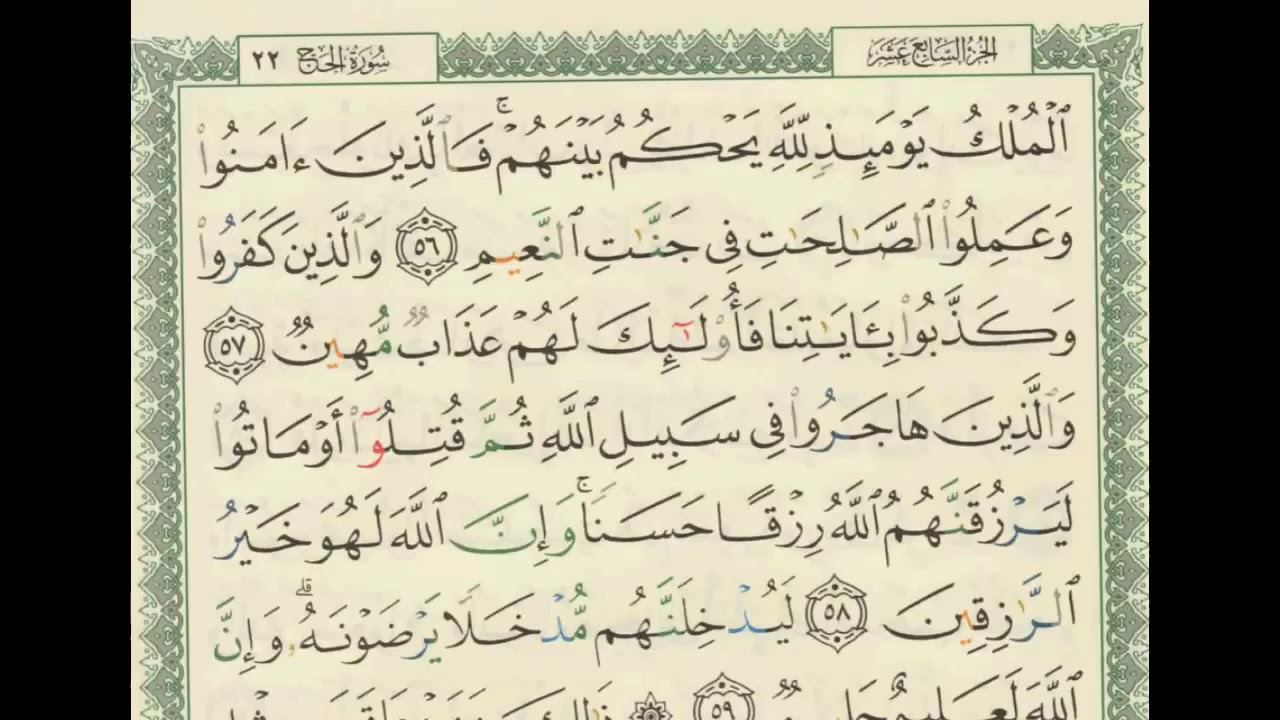 الجزء السابع عشر
سورة الحج ٢٢
ٱلْمُلْكُ يَوْمَئِذٍ لِّلَّهِ يَحْكُمُ بَيْنَهُمْ ۚ فَٱلَّذِينَ ءَامَنُوا۟
وَعَمِلُوا۟ ٱلصَّـٰلِحَـٰتِ فِى جَنَّـٰتِ ٱلنَّعِيمِ ٥٦ وَٱلَّذِينَ كَفَرُوا۟
وَكَذَّبُوا۟ بِـَٔايَـٰتِنَا فَأُو۟لَـٰٓئِكَ لَهُمْ عَذَابٌ مُّهِينٌ ٥٧
وَٱلَّذِينَ هَاجَرُوا۟ فِى سَبِيلِ ٱللَّهِ ثُمَّ قُتِلُوٓا۟ أَوْ مَاتُوا۟
لَيَرْزُقَنَّهُمُ ٱللَّهُ رِزْقًا حَسَنًا ۚ وَإِنَّ ٱللَّهَ لَهُوَ خَيْرُ
ٱلرَّٰزِقِينَ ٥٨ لَيُدْخِلَنَّهُم مُّدْخَلًا يَرْضَوْنَهُۥ ۗ وَإِنَّ
ٱللَّهَ لَعَلِيمٌ حَلِيمٌ ٥٩ ذَٰلِكَ